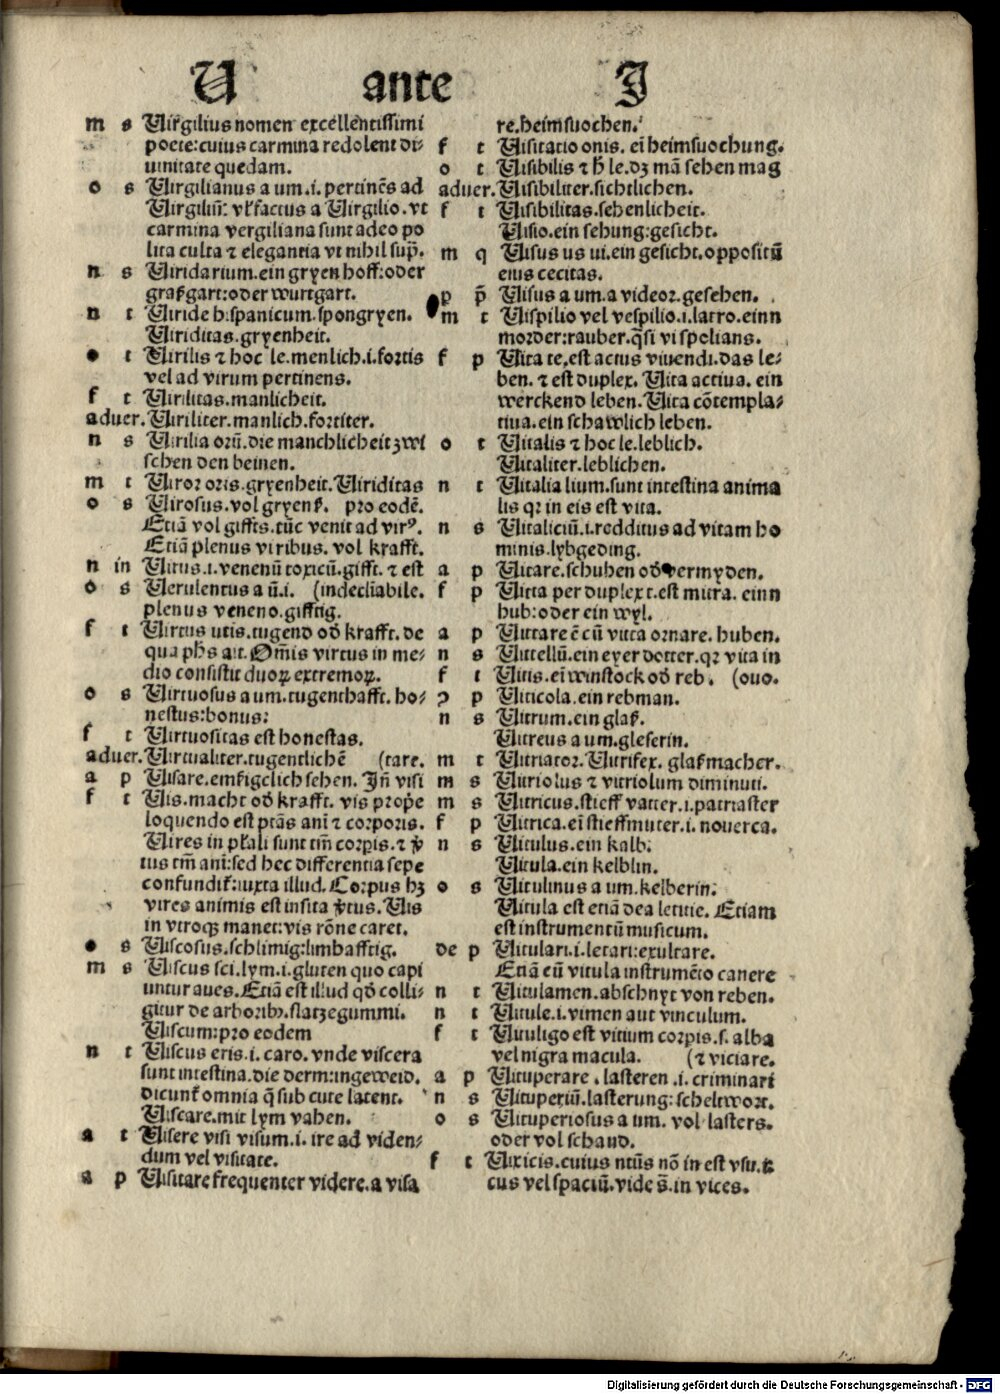 U ante J
m s Uirgilius nomen excellentissimi
poete: cuius carmina redolent di⸗
uinitate quedam.
o s Uirgilianus a um .i. pertinēs ad
Virgiliū: vl̕ factus a Uirgilio. vt
carmina vergiliana sunt adeo po
lita culta ⁊ elegantia vt nihil sup̄.
n s Uiridarium. ein gryen hoff: oder
graßgart: oder wurtgart.
n t Uiride hispanicum. spongryen.
Uiriditas. gryenheit.
o t Uirilis ⁊ hoc le. menlich .i. fortis
vel ad virum pertinens.
f t Uirilitas. manlicheit.
aduer. Uiriliter. manlich. fortiter.
n s Uirilia orū. die manchlicheit zwi
schen den beinen.
m t Uiror oris. gryenheit. Uiriditas
o s Uirosus. vol gryens. pro eodē.
Etiā vol giffts. tūc venit ad virꝰ.
Etiā plenus viribus. vol krafft.
n in Uirus .i. venenū toxicū. gifft. ⁊ est
o s Uerulentus a ū .i. (indecliabile.
plenus veneno. gifftig.
f t Uirtus utis. tugend od̕ krafft. de
qua ph̄s ait. Om̄is virtus in me⸗
dio consistit duoꝝ extremoꝝ.
o s Uirtuosus a um. tugenthafft. ho⸗
nestus: bonus:
f t Uirtuositas est honestas.
aduer. Uirtualiter. tugentlichē (tare.
a p Uisare. emßigclich sehen. Jn̄ visi
f t Uis. macht od̕ krafft. vis prop̄e
loquendo est ptās ani ⁊ corporis.
Uires in pl̕ali sunt tm̄ corpis. ⁊ v̕
tus tm̄ ani: sed hec differentia sepe
confundit̕: iuxta illud. Corpus hꝫ
vires animis est insita v̕tus. Uis
in vtroqꝫ manet: vis rōne caret.
o s Uiscosus. schlimig: limhafftig.
m s Uiscus sci. lym .i. gluten quo capi
untur aues. Etiā est illud qd̕ colli⸗
gitur de arboribꝫ. flatzegummi.
Uiscum: pro eodem
n t Uiscus eris .i. caro. vnde viscera
sunt intestina. die derm: ingeweid.
dicunt̕ omnia q̄ sub cute latent.
Uiscare. mit lym vahen.
a t Uisere visi visum .i. ire ad viden⸗
dum vel visitare.
a p Uisitare frequenter videre. a visa
re. heimsuochen.
f t Uisitatio onis. ei heimsuochung.
o t Uisibilis ⁊ h̄ le. dꝫ mā sehen mag
aduer. Uisibiliter. sichtlichen.
f t Uisibilitas. sehenlicheit.
Uisio. ein sehung: gesicht.
m q Uisus us ui. ein gesicht. oppositū
eius cecitas.
p p̄ Uisus a um. a videor. gesehen.
m t Uispilio vel vespilio .i. latro. einn
morder: rauber. q̄si vi spolians.
f p Uita te. est actus viuendi. das le⸗
ben. ⁊ est duplex. Uita actiua. ein
werckend leben. Uita cōtempla⸗
tiua. ein schawlich leben.
o t Uitalis ⁊ hoc le. leblich.
Uitaliter. leblichen.
n t Uitalia lium. sunt intestina anima
lis qꝛ in eis est vita.
n s Uitaliciū .i. redditus ad vitam ho
minis. lybgeding.
a p Uitare. schuhen od̕ vermyden.
f p Uitta per duplex t. est mitra. einn
hub: oder ein wyl.
a p Uittare ē cū vitta ornare. huben.
n s Uitellū. ein eyer dotter. qꝛ vita in
f t Uitis. ei winstock od̕ reb. (ouo.
ꝯ p Uiticola. ein rebman.
n s Uitrum. ein glaß.
Uitreus a um. gleserin.
m t Uitriator. Uitrifex. glaßmacher.
m s Uitriolus ⁊ vitriolum diminuti.
m s Uitricus. stieff vatter .i. patriaster
f p Uitrica. ei stieffmuter .i. nouerca.
n s Uitulus. ein kalb:
Uitula. ein kelblin.
o s Uitulinus a um. kelberin:
Uitula est etiā dea letitie. Etiam
est instrumentū musicum.
de p Uitulari .i. letari: exultare.
Etiā cū vitula instrumēto canere
n t Uitulamen. abschnyt von reben.
n t Uitule .i. vimen aut vinculum.
f t Uituligo est vitium corpis .s. alba
vel nigra macula. (⁊ viciare.
a p Uituperare . lasteren .i. criminari
n s Uituperiū. lasterung: scheltwort.
o s Uituperiosus a um. vol lasters.
oder vol schand.
f t Uixicis. cuius ntūs nō in est vsu.
cus vel spaciū. vide s̄. in vices.
Digitalisierung gefördert durch die Deutsche Forschungsgemeinschaft - DFG